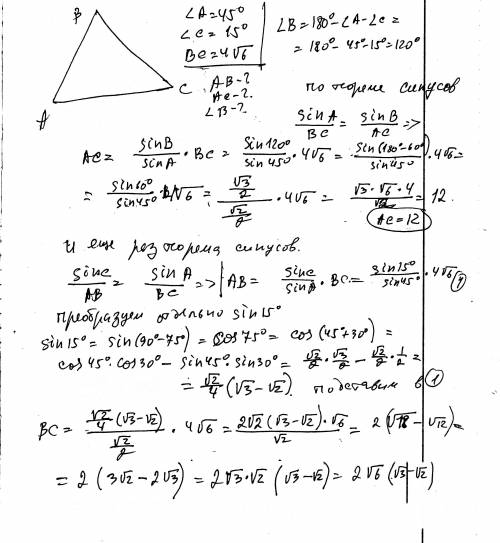 B
A
C
∠A=45°
∠C=15°
BC=4√6
AB-?
AC-?
∠B-?
∠B=180°-∠A-∠C=
=180°-45°-15°=120°
по теореме синусов
sinA/BC = sinB/AC =>
AC= sinB/sinA · BC = sin120°/sin45° · 4√6 = sin(180°-60°)/sin45° · 4√6 =
= sin60°/sin45° · 4√6 = (√3/2)/(√2/2) · 4√6 = √3·√6·4/√2 = 12.
AC=12
И еще раз теорема синусов.
sinC/AB = sinA/BC => AB= sinC/sinA · BC= sin15°/sin45° · 4√6
преобразуем отдельно sin15°
sin15°= sin(90°-75°)= cos75°= cos(45°+30°)=
cos45°·cos30°- sin45°·sin30°= √2/2 · √3/2 - √2/2 · 1/2 =
= √2/4 (√3-√2). подставим в (1)
BC= (√2/4 (√3-√2))/(√2/2) · 4√6= 2√2(√3-√2)·√6/√2 = 2(√18-√12)=
= 2(3√2-2√3)= 2√3·√2(√3-√2)= 2√6(√3-√2)